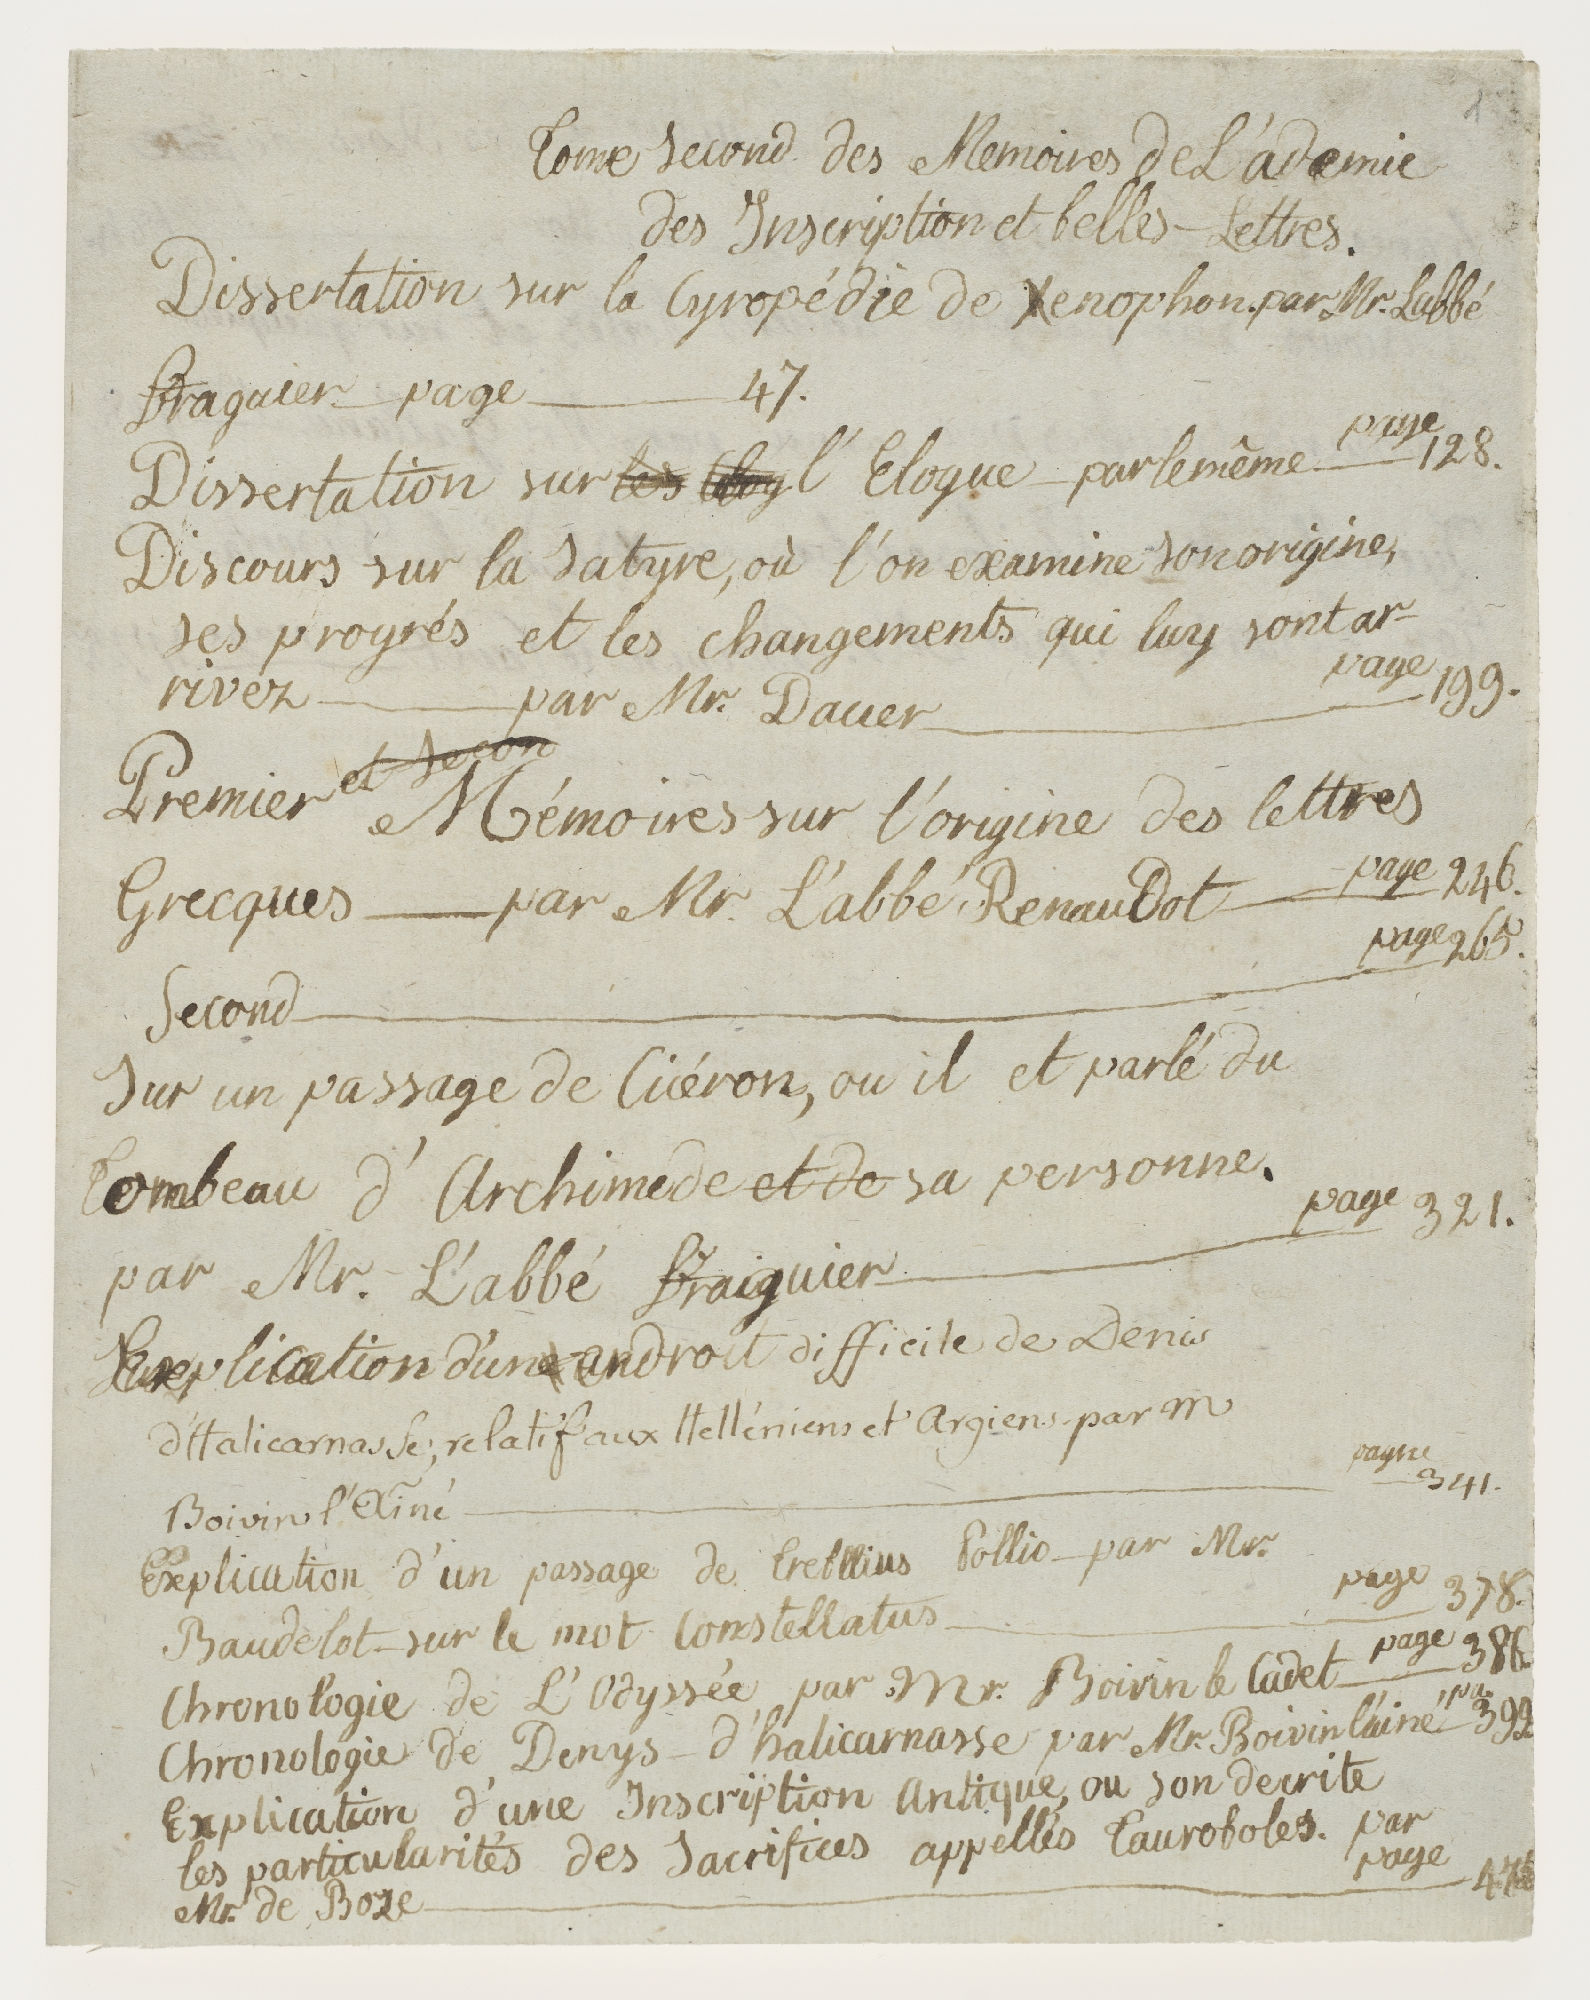 1
Tome second des Memoires de L'ademie
des Inscription et belles-Lettres.
Dissertation sur la Cyropédie de Xenophon. par Mr. Labbé
Fraguier page 47.
Dissertation sur les l' Eloque par le même page 128.
Discours sur la Satyre, où l'on examine son origine,
ses progrés et les changements qui luy sont ar-
rivez par Mr. Dacier page 199.
et secon
Premier Mémoires sur l'origine des lettres
Grecques par Mr. L'abbé Renaudot page 246.
Second page 265.
Sur un passage de Cicéron, ou il et parlé du
Tombeau d' Archimede et de sa personne.
par Mr. L'abbé Fraiguier page 321.
Explication d'un androit difficile de Denis
d'Halicarnasse, relatif aux Helléniens et Argiens par m
Boivin l'Ainé 341.
Explication d'un passage de Trebllius Pollio par Mr.
Baudelot sur le mot Constellatus page 378.
Chronologie de L'Odyssée par Mr. Boivin le Cadet page 386.
Chronologie de Denys d'halicarnasse par Mr. Boivin l'ainé pa. 399
Explication d'une Inscription Antique, ou son decrite
les particularités des Sacrifices appellés Tauroboles. par
Mr. de Boze page